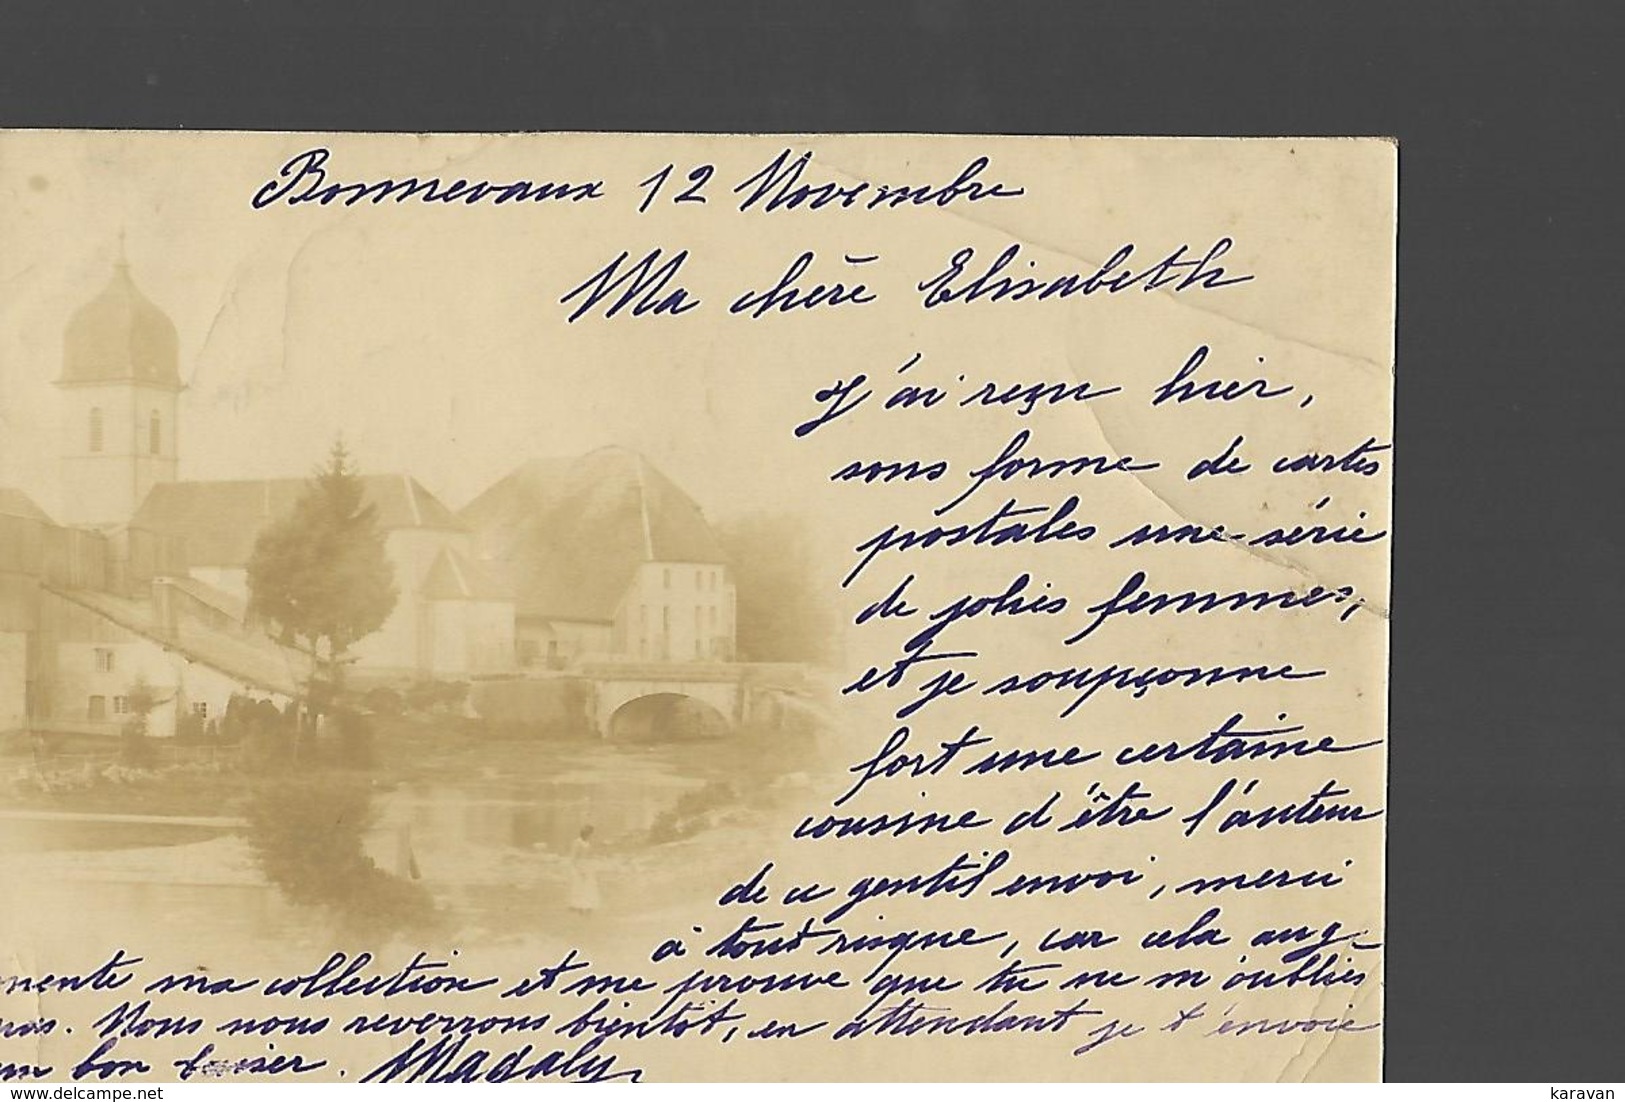 Bonnevaux 12 Novembre
Ma chère Elisabeth
J'ai reçu hier,
sous forme de cartes
postales une série
de jolies femmes,
et je soupçonne
fort une certaine
cousine d'être l'auteur
de ce gentil envoi, merci
à tout risque, car cela aug-
mente ma collection et me prouve que tu ne m'oublies
pas. Nous nous reverrons bientôt, en attendant je t'envoie
un bon baiser. Magaly
delcampe.net
karavan